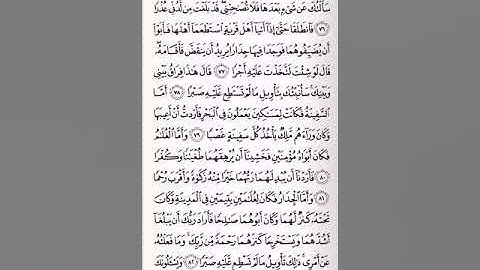 سَأَلْتُكَ عَن شَيْءٍۭ بَعْدَهَا فَلَا تُصَٰحِبْنِى ۖ قَدْ بَلَغْتَ مِن لَّدُنِّى عُذْرًا
٧٦ فَٱنطَلَقَا حَتَّىٰٓ إِذَآ أَتَيَآ أَهْلَ قَرْيَةٍ ٱسْتَطْعَمَآ أَهْلَهَا فَأَبَوْا۟
أَن يُضَيِّفُوهُمَا فَوَجَدَا فِيهَا جِدَارًا يُرِيدُ أَن يَنقَضَّ فَأَقَامَهُۥ ۖ
قَالَ لَوْ شِئْتَ لَتَّخَذْتَ عَلَيْهِ أَجْرًا ٧٧ قَالَ هَٰذَا فِرَاقُ بَيْنِى
وَبَيْنِكَ ۚ سَأُنَبِّئُكَ بِتَأْوِيلِ مَا لَمْ تَسْتَطِع عَّلَيْهِ صَبْرًا ٧٨ أَمَّا
ٱلسَّفِينَةُ فَكَانَتْ لِمَسَٰكِينَ يَعْمَلُونَ فِى ٱلْبَحْرِ فَأَرَدتُّ أَنْ أَعِيبَهَا
وَكَانَ وَرَآءَهُم مَّلِكٌ يَأْخُذُ كُلَّ سَفِينَةٍ غَصْبًا ٧٩ وَأَمَّا ٱلْغُلَٰمُ
فَكَانَ أَبَوَاهُ مُؤْمِنَيْنِ فَخَشِينَآ أَن يُرْهِقَهُمَا طُغْيَٰنًا وَكُفْرًا
٨٠ فَأَرَدْنَآ أَن يُبْدِلَهُمَا رَبُّهُمَا خَيْرًا مِّنْهُ زَكَوٰةً وَأَقْرَبَ رُحْمًا
٨١ وَأَمَّا ٱلْجِدَارُ فَكَانَ لِغُلَٰمَيْنِ يَتِيمَيْنِ فِى ٱلْمَدِينَةِ وَكَانَ
تَحْتَهُۥ كَنزٌ لَّهُمَا وَكَانَ أَبُوهُمَا صَٰلِحًا فَأَرَادَ رَبُّكَ أَن يَبْلُغَآ
أَشُدَّهُمَا وَيَسْتَخْرِجَا كَنزَهُمَا رَحْمَةً مِّن رَّبِّكَ ۚ وَمَا فَعَلْتُهُۥ
عَنْ أَمْرِى ۚ ذَٰلِكَ تَأْوِيلُ مَا لَمْ تَسْطِع عَّلَيْهِ صَبْرًا ٨٢ وَيَسْـَٔلُونَكَ